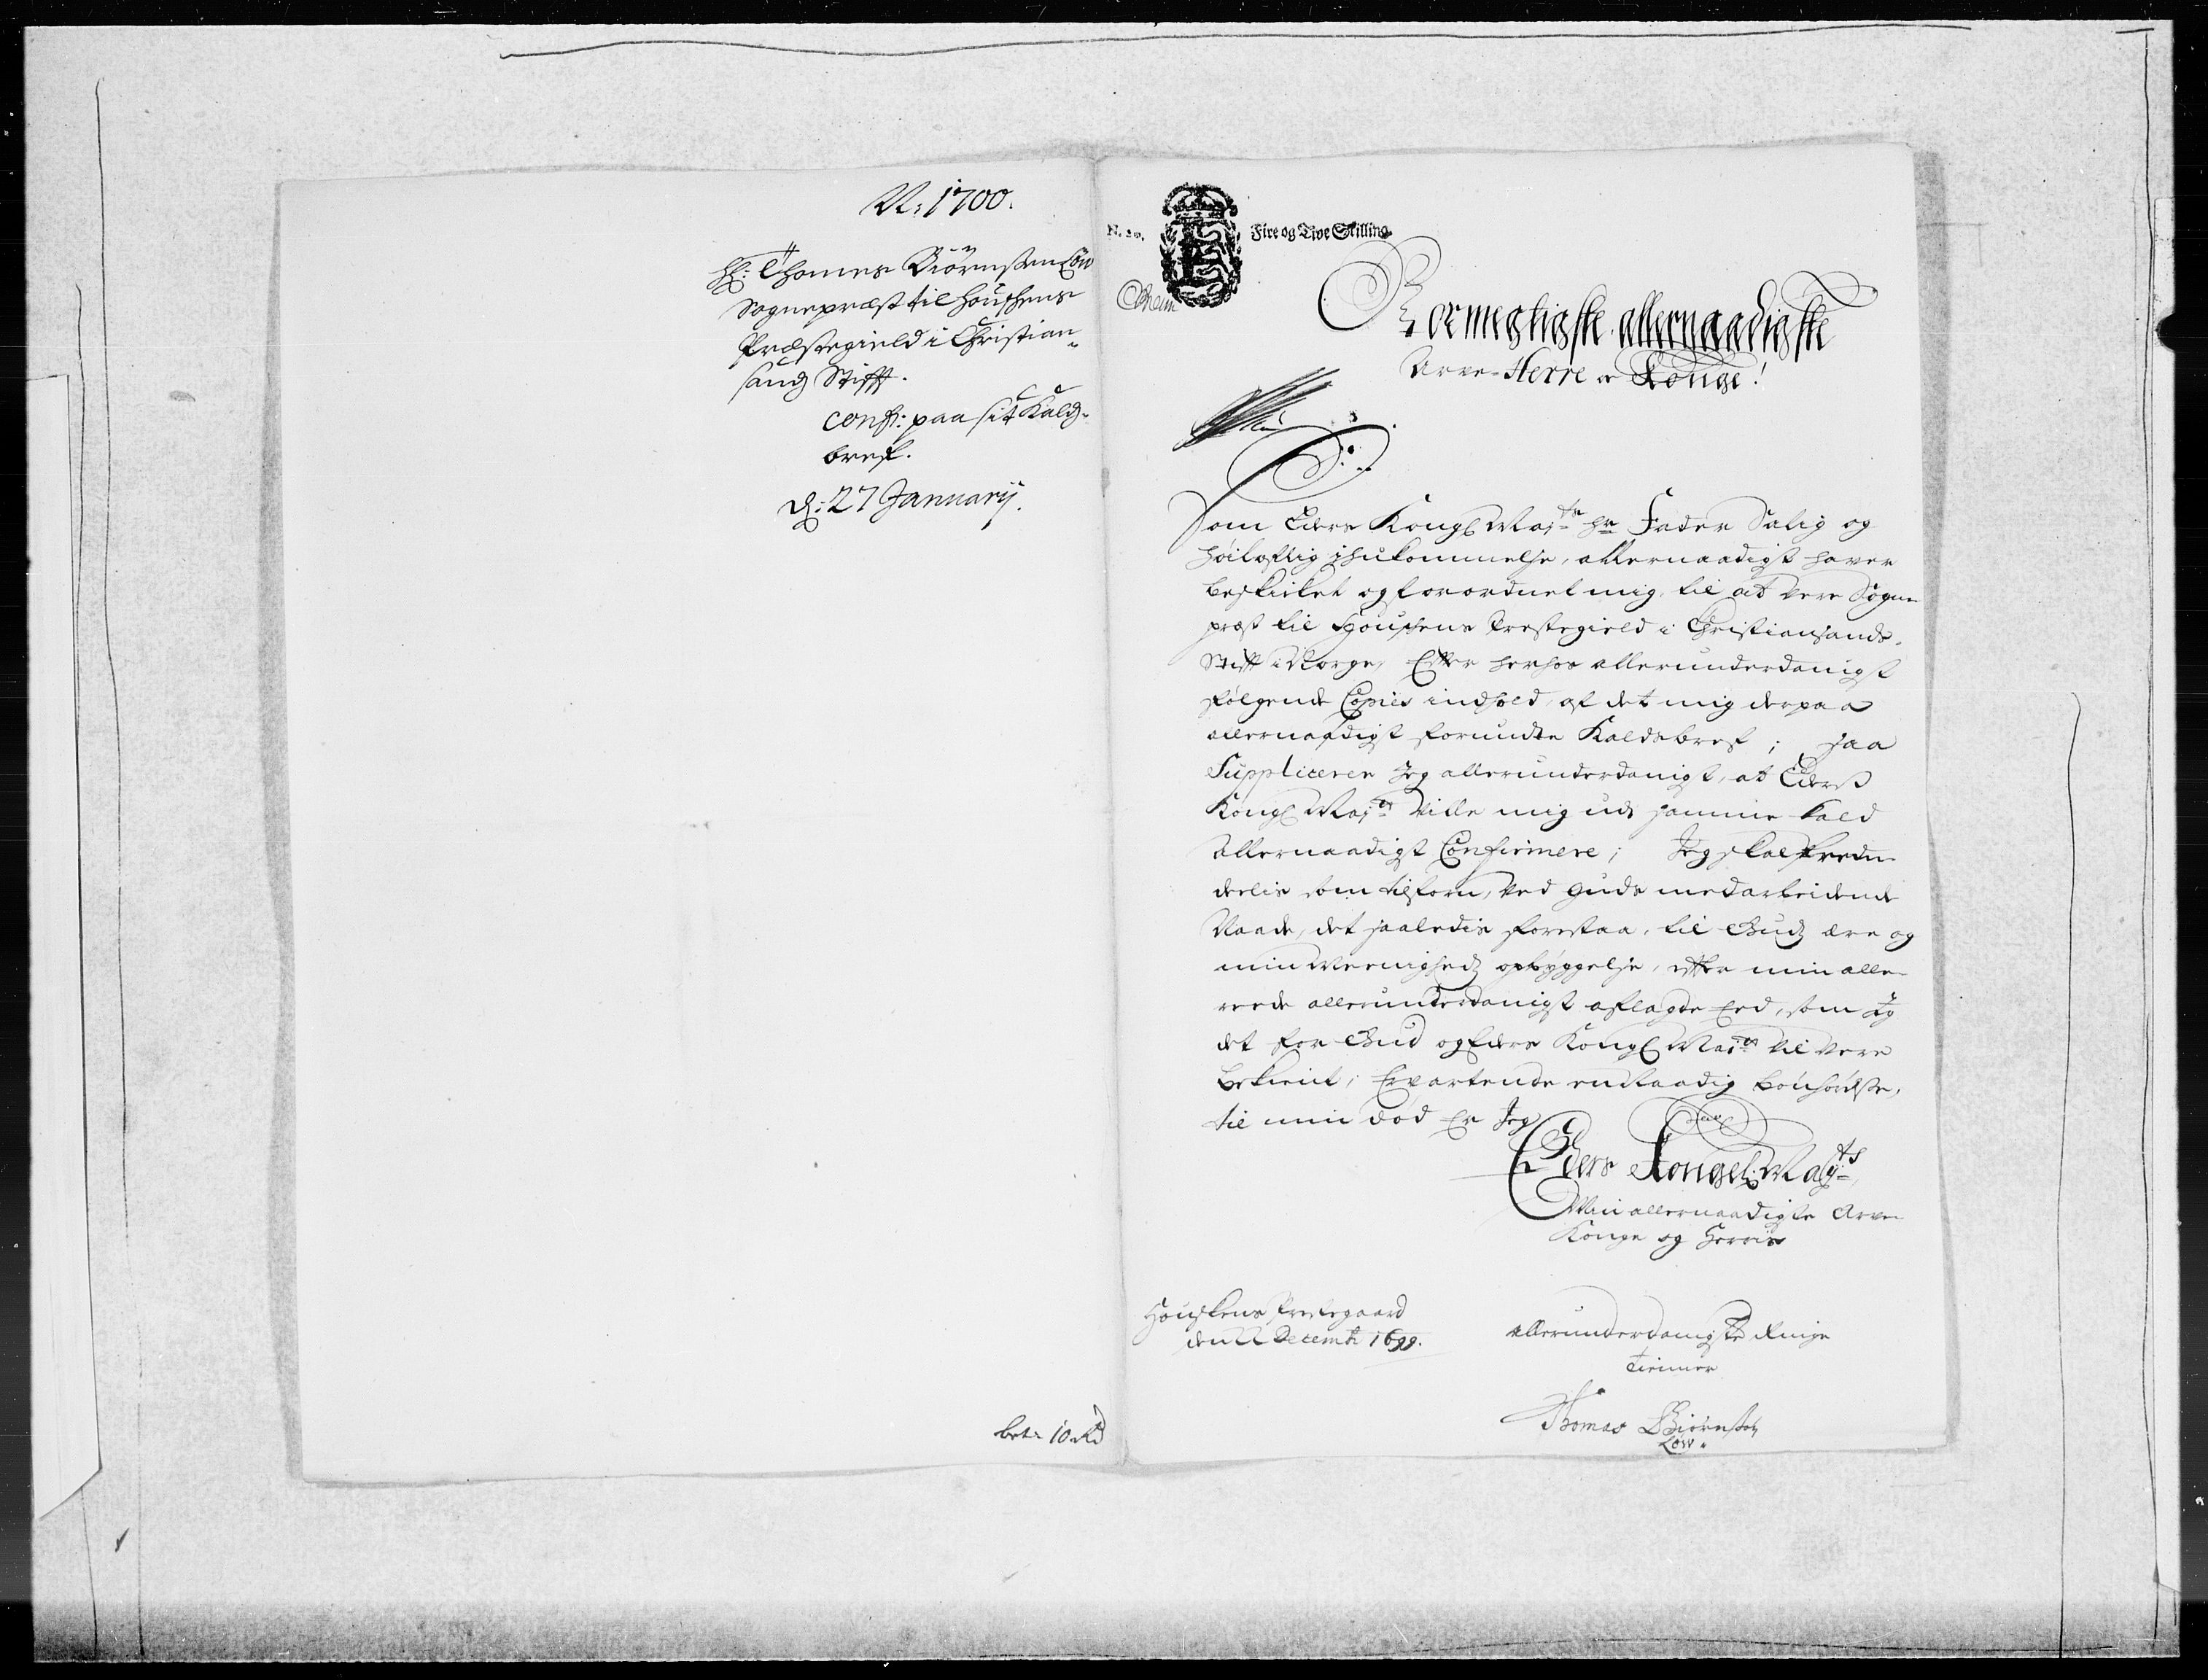 N: 1700.
Hr: Thomes Biörnssen Löw
Sognepræst til Houskens
Præstegield i Christian-
sands Stifft.
conf: paa sit Kalds-
bref.
d: 27 Januarij.
bet: 10 Rd
N. 20. Fire og Tive Skilling
Stormegtigste allernaadigste
Arve-Herre oc Konge!
Som Eders Kongl Majts hr Fader Salig og
høiloflig ihukommelse, allernaadigst haver
beskicket og forordnet mig, til at vere Sogne
præst til Houskens Prestegield i Christiansands
Stift i Norge, Efter herhos allerunderdanigst
følgende Copies indhold, af det mig derpaa
allernaadigst forundte Kaldsbref; saa
Supplicerer Jeg allerunderdanigst, at Eders
Kongl Majts ville mig udi samme kald
Allernaadigst Confirmere; Jeg skal frem-
delis som tilforn, ved Guds medarbeidende
Naade, det saaledis forestaa, til Guds ære og
min Meenigheds opbyggelse, efter min alle-
reede allerunderdanigst aflagde Eed, som Jeg
det for Gud og Eders Kongl Majts vil vere
bekient; Ervartende en Naadig bønhørelse,
til min død Er Jeg
Eders Kongel: Mayts
Min allernaadigste Arve
Konge og Herris
Houskens Prestegaard
den 22 Decemb 1699.
allerunderdanigste ringe
tienner
Thomas Biørnsen
Löw.